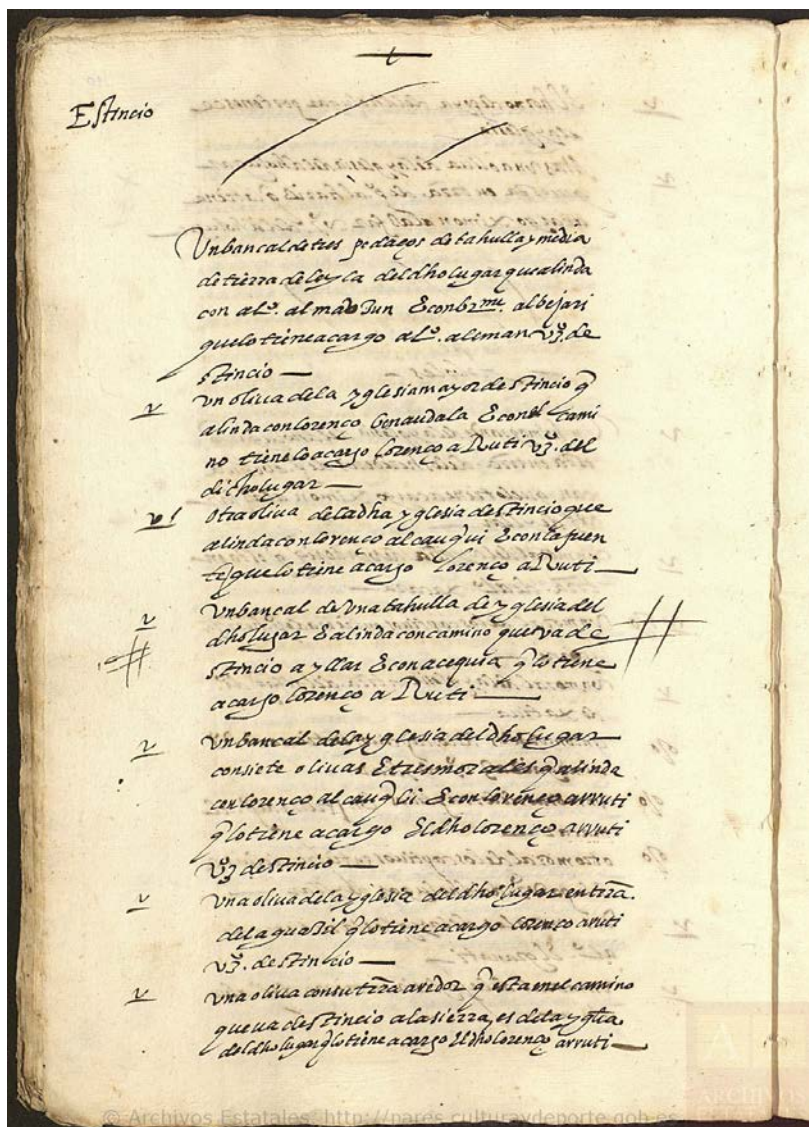 t
Estincio
Un bancal de tres pedaços de tahulla y media
de tierra de la ygla del dho lugar que alinda
con al.º almad Jun E con br.me albejari
que lo tiene a cargo al.º aleman vº de
stincio —
v un oliva de la yglesia mayor de stincio q̃
alinda con lorenço benaudala E con el cami
no tiene lo a cargo lorenço a Ruti vº del
dicho lugar —
v otra oliva de la dha yglesia de stincio que
alinda con lorenço al cauq̃ui E con la fuen
te que lo tiene a cargo lorenço a Ruti —
v un bancal de una tahulla de yglesia del
dho lugar E alinda con camino que va de
stincio a yllar E con acequia q̃ lo tiene
a cargo lorenço a Ruti —
v un bancal de la yglesia del dho lugar
con siete olivas E tres morales q̃ alinda
con lorenço al cauq̃ui E con lorenço arruti
q̃ lo tiene a cargo El dho lorenço arruti
vº de stincio —
v una oliva de la yglesia del dho lugar en trr̃a
del aguazil q̃ lo tiene a cargo lorenço aruti
vº de stincio —
v una oliva con su trr̃a aredor q̃ esta en el camino
que va de stincio a la sierra, es de la ygla
del dho lugar q̃ lo tiene a cargo El dho lorenço arruti —
© Archivos Estatales http://pares.culturaydeporte.gob.es
A
ARCHIVOS